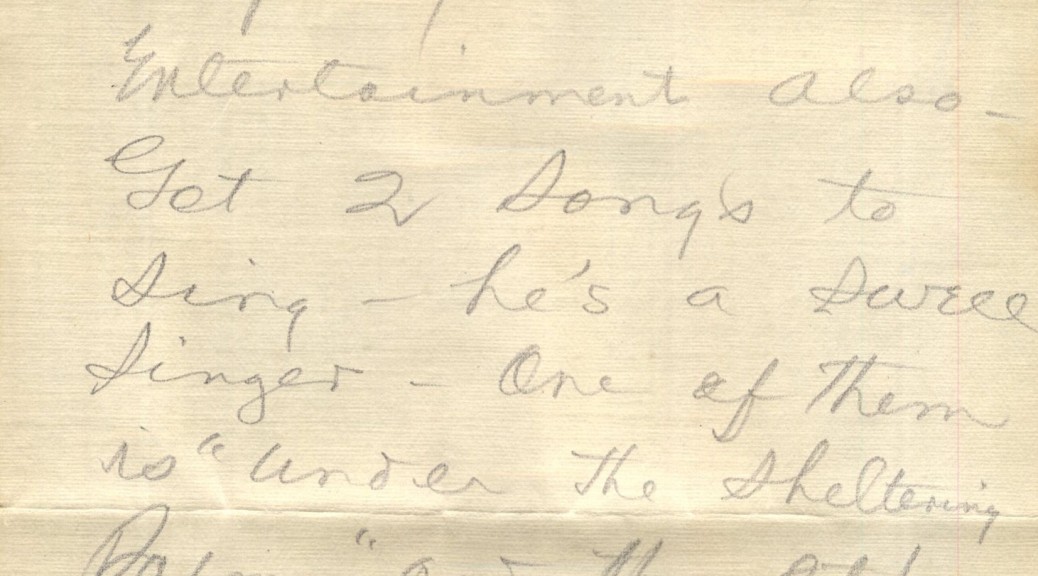 Entertainment also -
Got 2 Songs to
Sing - he's a Swell
Singer - One of Them
is "under the Sheltering
Palms" and the